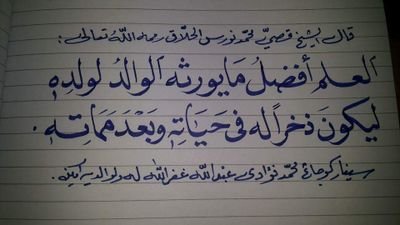 قال الشيخ قصي محمد نورس الحلاق رحمه الله تعالى:
العلم أفضل ما يورثه الوالد لولده
ليكون ذخراً له في حياته وبعد مماته.
محمد نؤادى عبد الله غفر الله له ولوالديه آمين.